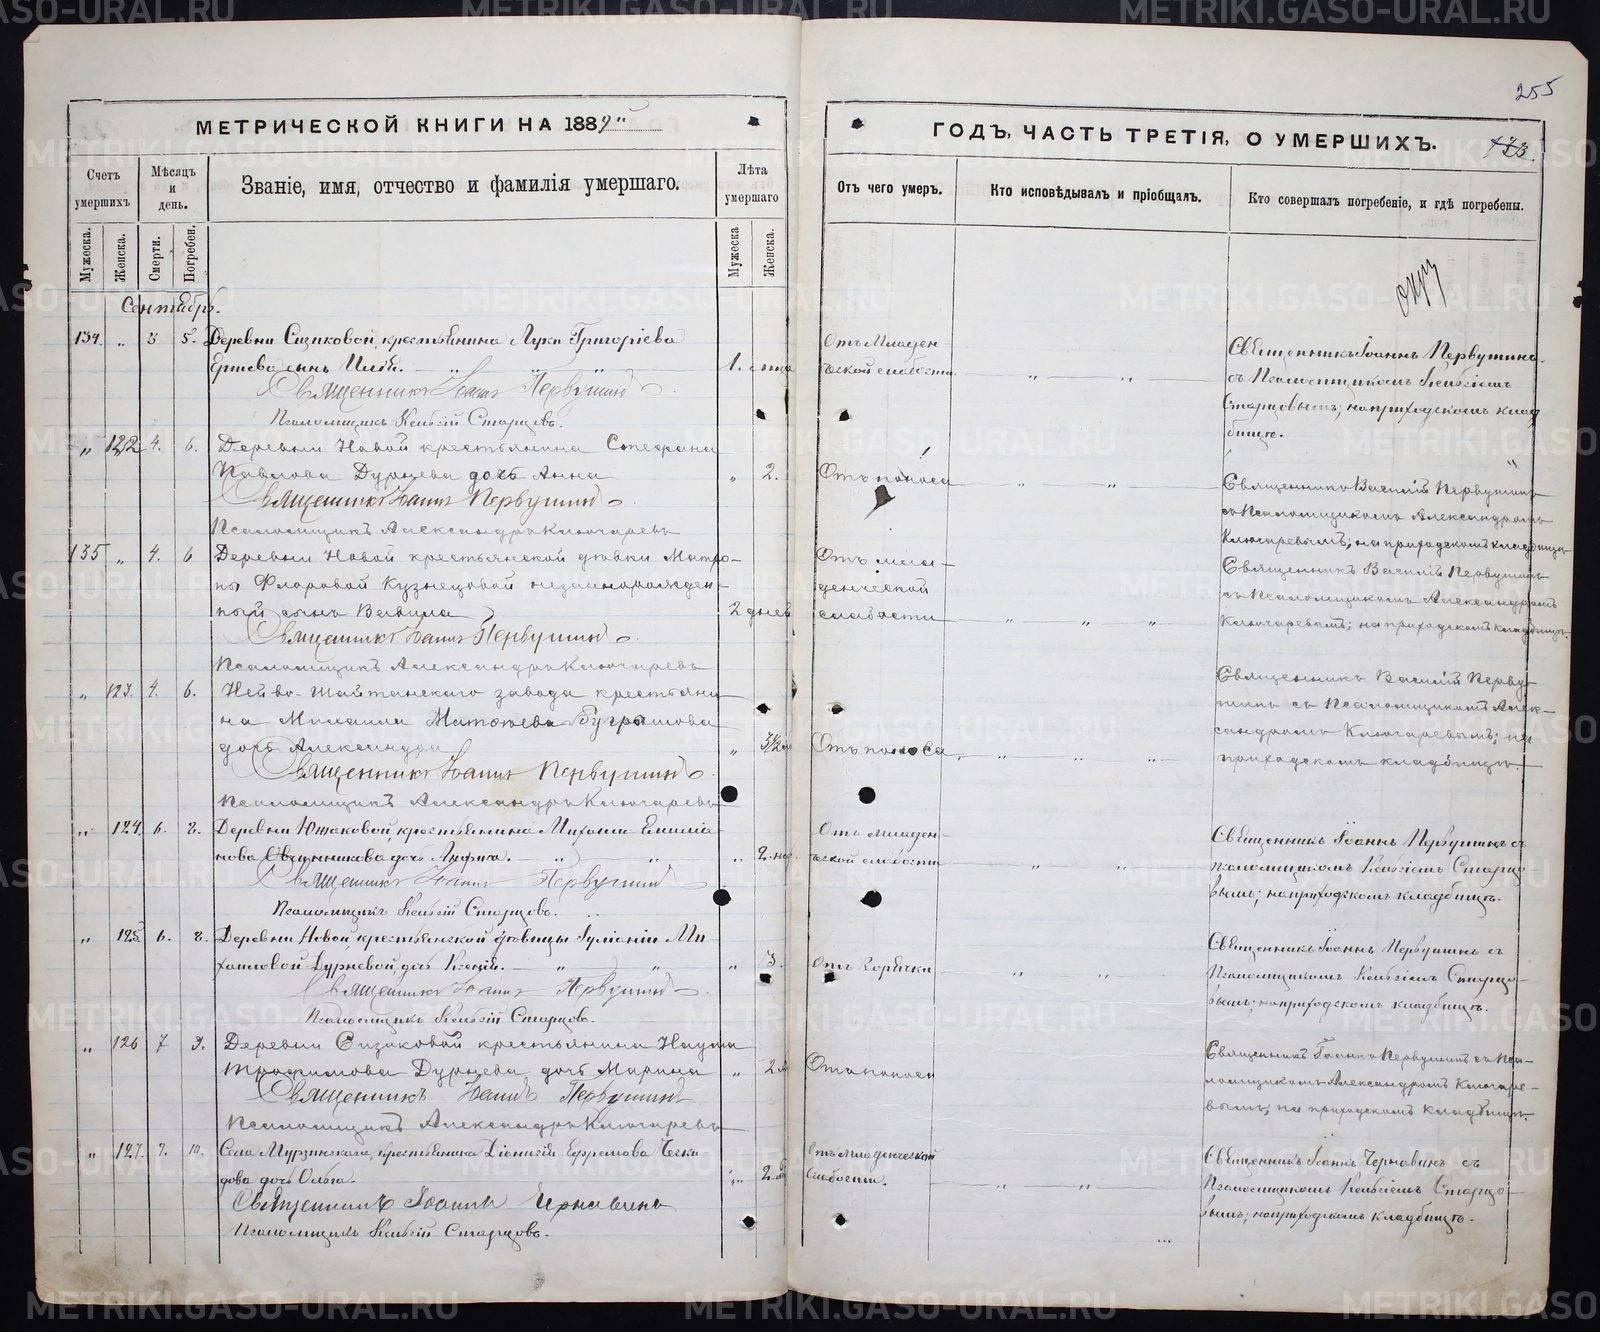 255
МЕТРИЧЕСКОЙ КНИГИ НА 1889"
ГОДЪ, ЧАСТЬ ТРЕТІЯ, О УМЕРШИХЪ.
123.
Счетъ умершихъ
Мѣсяцъ и день.
Званіе, имя, отчество и фамилія умершаго.
Лѣта умершаго
Отъ чего умеръ.
Кто исповѣдывалъ и пріобщалъ.
Кто совершалъ погребеніе, и гдѣ погребены.
Мужеска.
Женска.
Смерти.
Погребен.
Мужеска
Женска.
Сентябрь.
134. „ 3 5. Деревни Сизиковой, крестьянина Луки Григоріева
сынъ Илія. 1.
Священникъ Іоаннъ Первушинъ
Псаломщикъ Старцовъ.
Отъ Младен
ческой слабости.
Священникъ Іоаннъ Первушинъ
съ Псаломщикомъ
Старцовымъ; на приходскомъ клад
бищѣ.
„ 122 4. 6. Деревни Новой крестьянина Стефана
Павлова Дурнева дочь Анна „ 2.
Священникъ Іоаннъ Первушинъ
Псаломщикъ Александръ Ключаревъ
Отъ поноса
Священникъ Василій Первушинъ
съ Псаломщикомъ Александромъ
Ключаревымъ; на приходскомъ кладбищѣ
135 „ 4. 6 Деревни Новой крестьянской дѣвки Матро-
ны Флоровой Кузнецовой незаконорожден-
ный сынъ Вавила 2 дней
Священникъ Іоаннъ Первушинъ
Псаломщикъ Александръ Ключаревъ
Отъ мла-
денческой
слабости
Священникъ Василій Первушинъ
съ Псаломщикомъ Александромъ
Ключаревымъ; на приходскомъ кладбищѣ.
„ 123. 4. 6. Нейво-Шайтанскаго завода крестьяни
на Михаила
дочь Александра „ 3½
Священникъ Іоаннъ Первушинъ
Псаломщикъ Александръ Ключаревъ
Отъ поноса
Священникъ Василій Перву-
шинъ съ Псаломщикомъ Алек-
сандромъ Ключаревымъ; на
приходскомъ кладбищѣ.
„ 124. 6. 8. Деревни крестьянина Михаила Емилiа
нова Овчинникова дочь „ 2.
Священникъ Іоаннъ Первушинъ
Псаломщикъ Старцовъ.
Отъ младен-
ческой слабости
Священникъ Іоаннъ Первушинъ съ
псаломщикомъ Старцо-
вымъ; на приходскомъ кладбищѣ.
„ 125. 6. 8. Деревни Новой, крестьянской дѣвицы Ми
хаиловой Дурневой, дочь Ксенія. „ 3.
Священникъ Іоаннъ Первушинъ
Псаломщикъ Старцовъ.
Отъ Горячки
Священникъ Іоаннъ Первушинъ съ
Псаломщикомъ Старцо-
вымъ; на приходскомъ кладбищѣ.
„ 126 7 9. Деревни Сизиковой крестьянина Наума
Трофимова Дурнева дочь Марина „ 2
Священникъ Іоаннъ Первушинъ
Псаломщикъ Александръ Ключаревъ
Отъ поноса
Священникъ Іоаннъ Первушинъ съ Пса-
ломщикомъ Александромъ Ключаре-
вымъ, на приходскомъ кладбищѣ.
„ 127. 7. 10. Села Мурзинскаго, крестьянина Діонисія Ефремова
дочь Ольга. „ 2.
Священникъ Іоаннъ Чернавинъ
Псаломщикъ Старцовъ.
Отъ младенческой
слабости.
Священникъ Іоаннъ Чернавинъ съ
Псаломщикомъ Старцо-
вымъ; на приходскомъ кладбищѣ.
METRIKI.GASO-URAL.RU